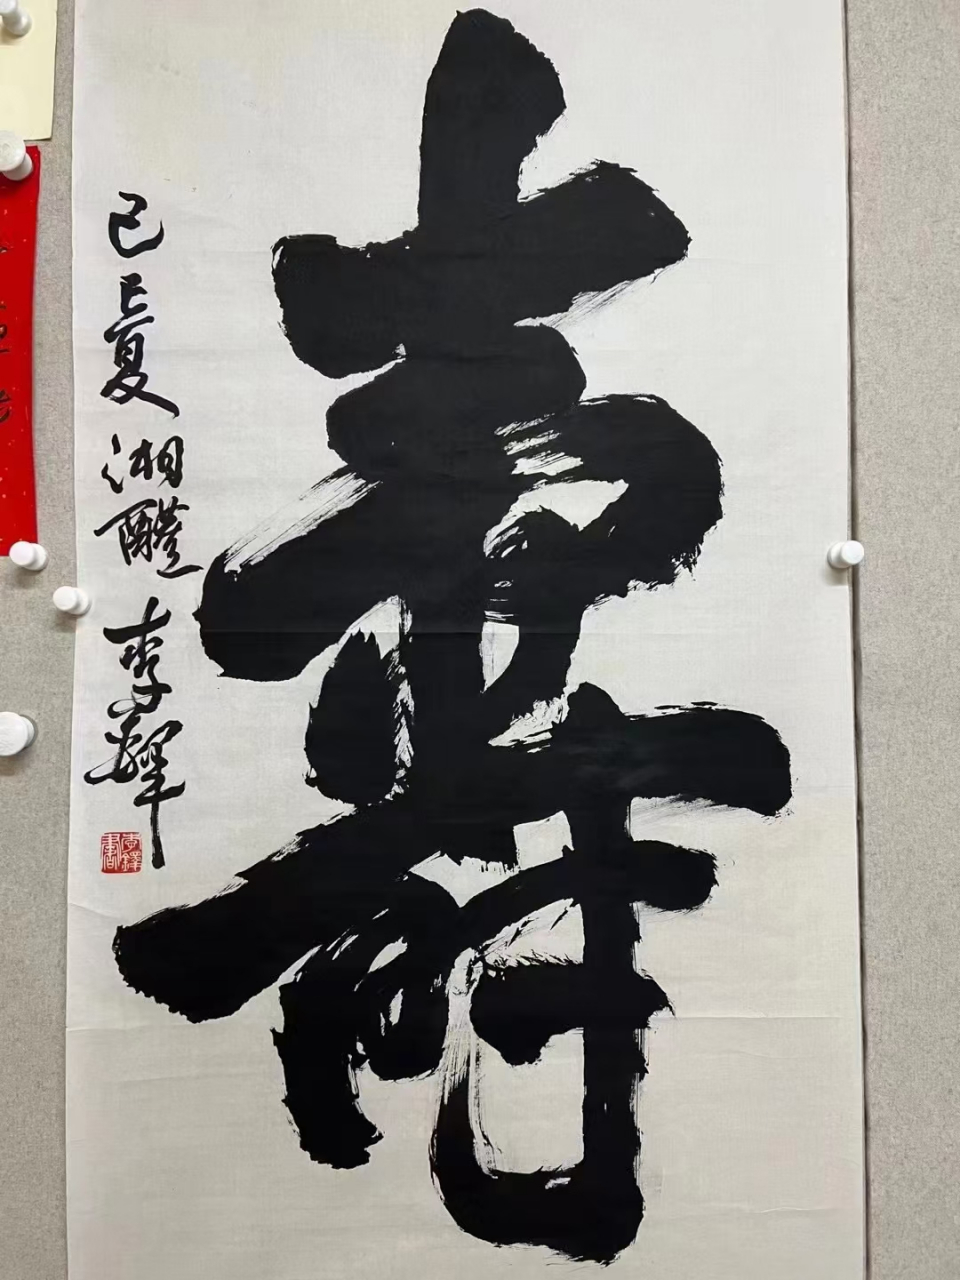 壽
己巳夏湘醴李鐸
李鐸書